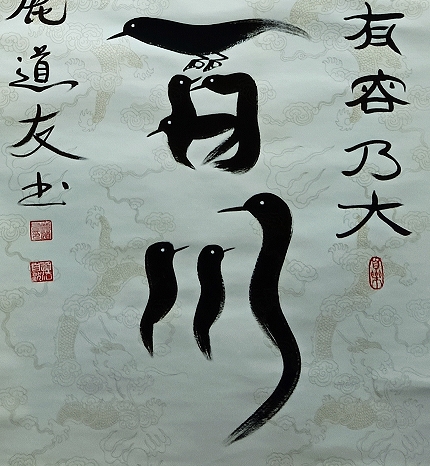 有容乃大
百川
道友书